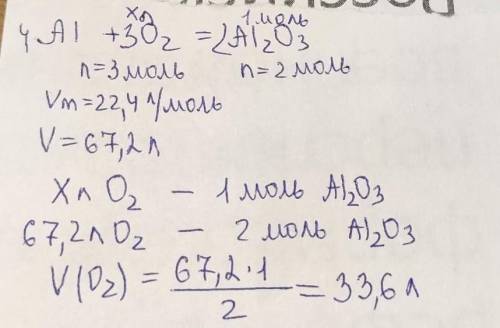 X л 1 моль
4Al + 3O₂ = 2Al₂O₃
n=3 моль n=2 моль
Vm=22,4 л/моль
V=67,2 л
X л O₂ – 1 моль Al₂O₃
67,2 л O₂ – 2 моль Al₂O₃
V(O₂) = 67,2·1 / 2 = 33,6 л